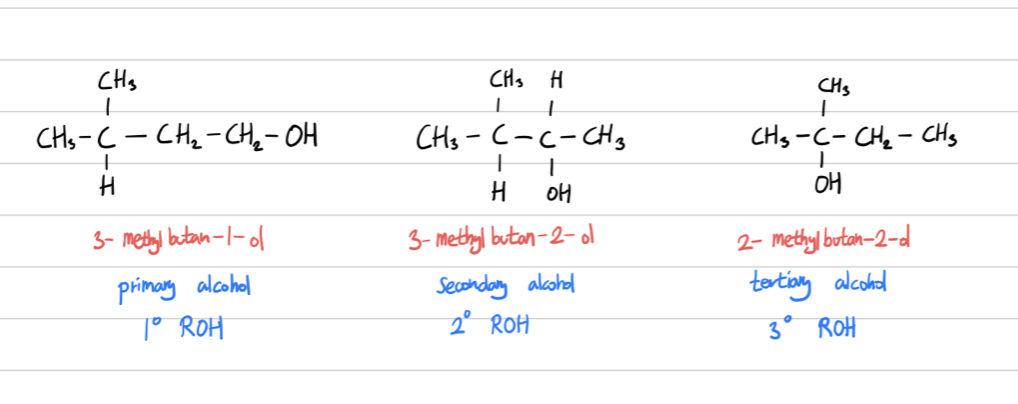 CH₃
CH₃-C-CH₂-CH₂-OH
H
3-methylbutan-1-ol
primary alcohol
1° ROH
CH₃ H
CH₃-C-C-CH₃
H OH
3-methylbutan-2-ol
secondary alcohol
2° ROH
CH₃
CH₃-C-CH₂-CH₃
OH
2-methylbutan-2-ol
tertiary alcohol
3° ROH